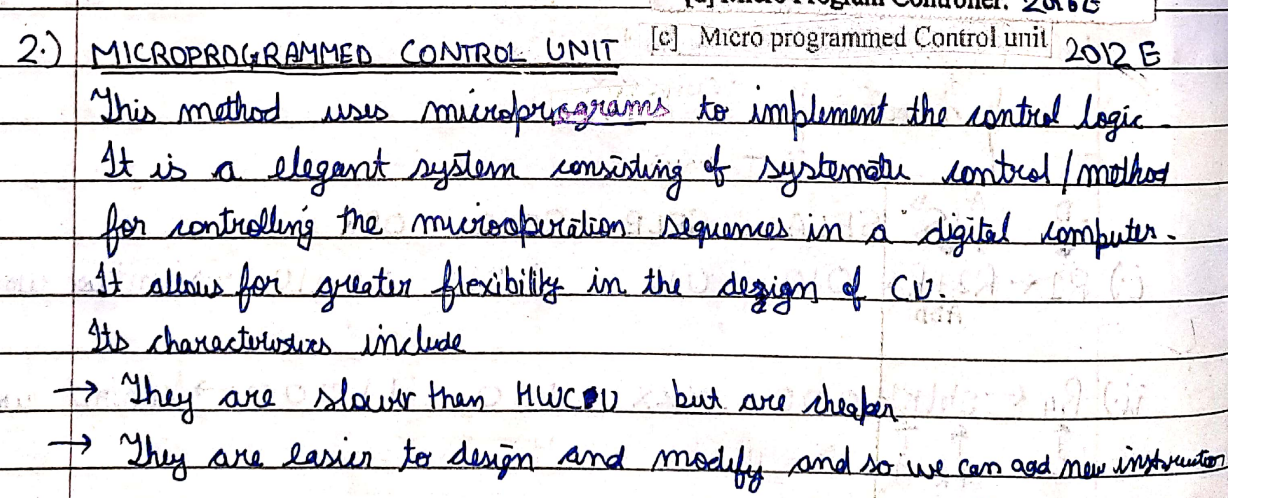 2016 E
2.) MICROPROGRAMMED CONTROL UNIT [c] Micro programmed Control unit 2012 E
This method uses microprograms to implement the control logic.
It is a elegant system consisting of systematic control / method
for controlling the microoperation sequences in a digital computer.
It allows for greater flexibility in the design of CU.
Its characteristics include
→ They are slower than HWCU but are cheaper
→ They are easier to design and modify and so we can add new instruction